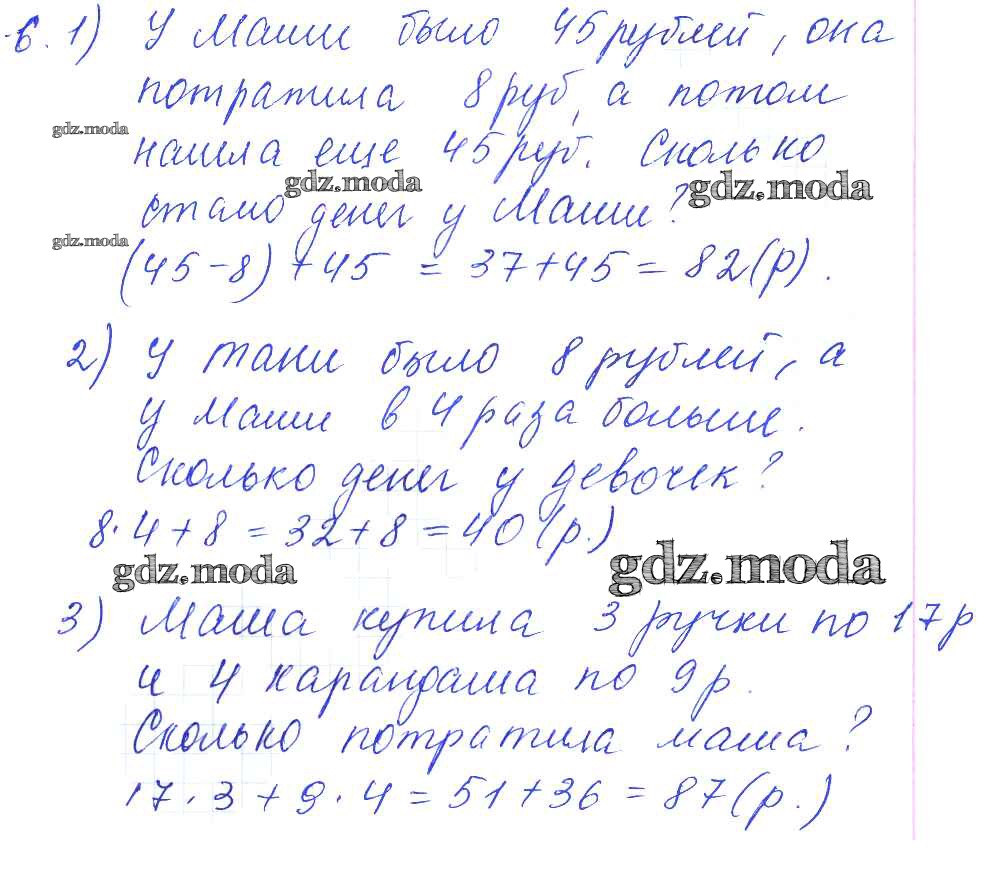 6. 1) У Маши было 45 рублей, она
потратила 8 руб, а потом
gdz.moda
нашла еще 45 руб. Сколько
gdz.moda
gdz.moda
стало денег у Маши?
gdz.moda
(45-8)+45 = 37+45 = 82(р).
2) У тани было 8 рублей, а
у Маши в 4 раза больше.
Сколько денег у девочек?
8·4+8 = 32+8 = 40(р.)
gdz.moda
gdz.moda
3) Маша купила 3 ручки по 17р
и 4 карандаша по 9р.
Сколько потратила маша?
17·3+9·4 = 51+36 = 87(р.)